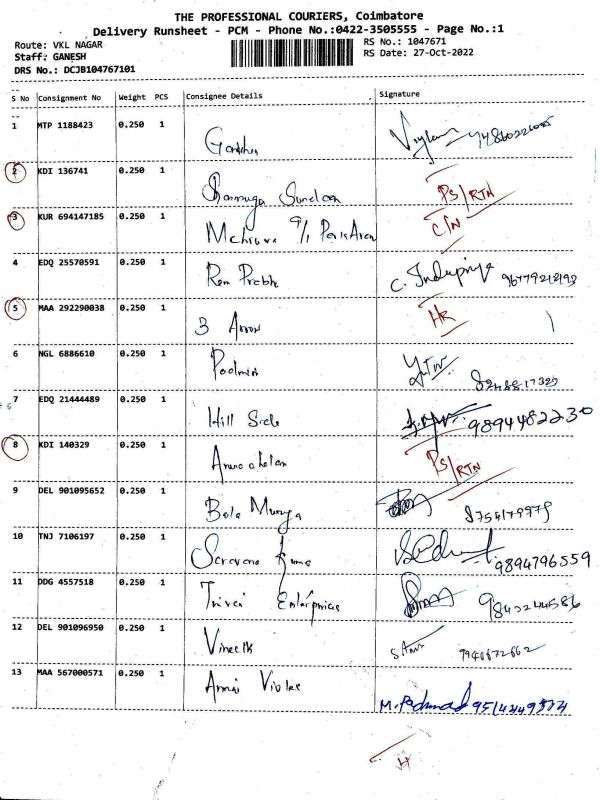 THE PROFESSIONAL COURIERS, Coimbatore
Delivery Runsheet - PCM - Phone No.:0422-3505555 - Page No.:1
Route: VKL NAGAR RS No.: 1047671
Staff: GANESH RS Date: 27-Oct-2022
DRS No.: DCJB104767101
S No Consignment No Weight PCS Consignee Details Signature
1 MTP 1188423 0.250 1
2 KDI 136741 0.250 1 Shanmuga Sundaram PS/RTN
3 KUR 694147185 0.250 1 C/N
4 EDQ 25570591 0.250 1 Ram Prabhu C. Indupriya
5 MAA 292290038 0.250 1 3 Arrow HR
6 NGL 6886610 0.250 1 Padmin
7 EDQ 21444489 0.250 1 Hill Side 9894482230
8 KDI 140329 0.250 1 Arunachalam PS/RTN
9 DEL 901095652 0.250 1 Bala Muruga 8754179979
10 TNJ 7106197 0.250 1 Saravana Kumar 9894796559
11 DDG 4557518 0.250 1 Enterprises
12 DEL 901096950 0.250 1 Vineeth
13 MAA 567000571 0.250 1
H